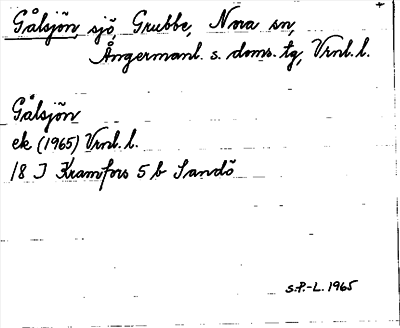 Gålsjön, sjö, Grubbe, Nora sn,
Ångermanl. s. doms. tg, Vrnl. l.
Gålsjön
ek (1965) Vrnl. l.
18 I Kramfors 5 b Sandö
S.P.-L. 1965